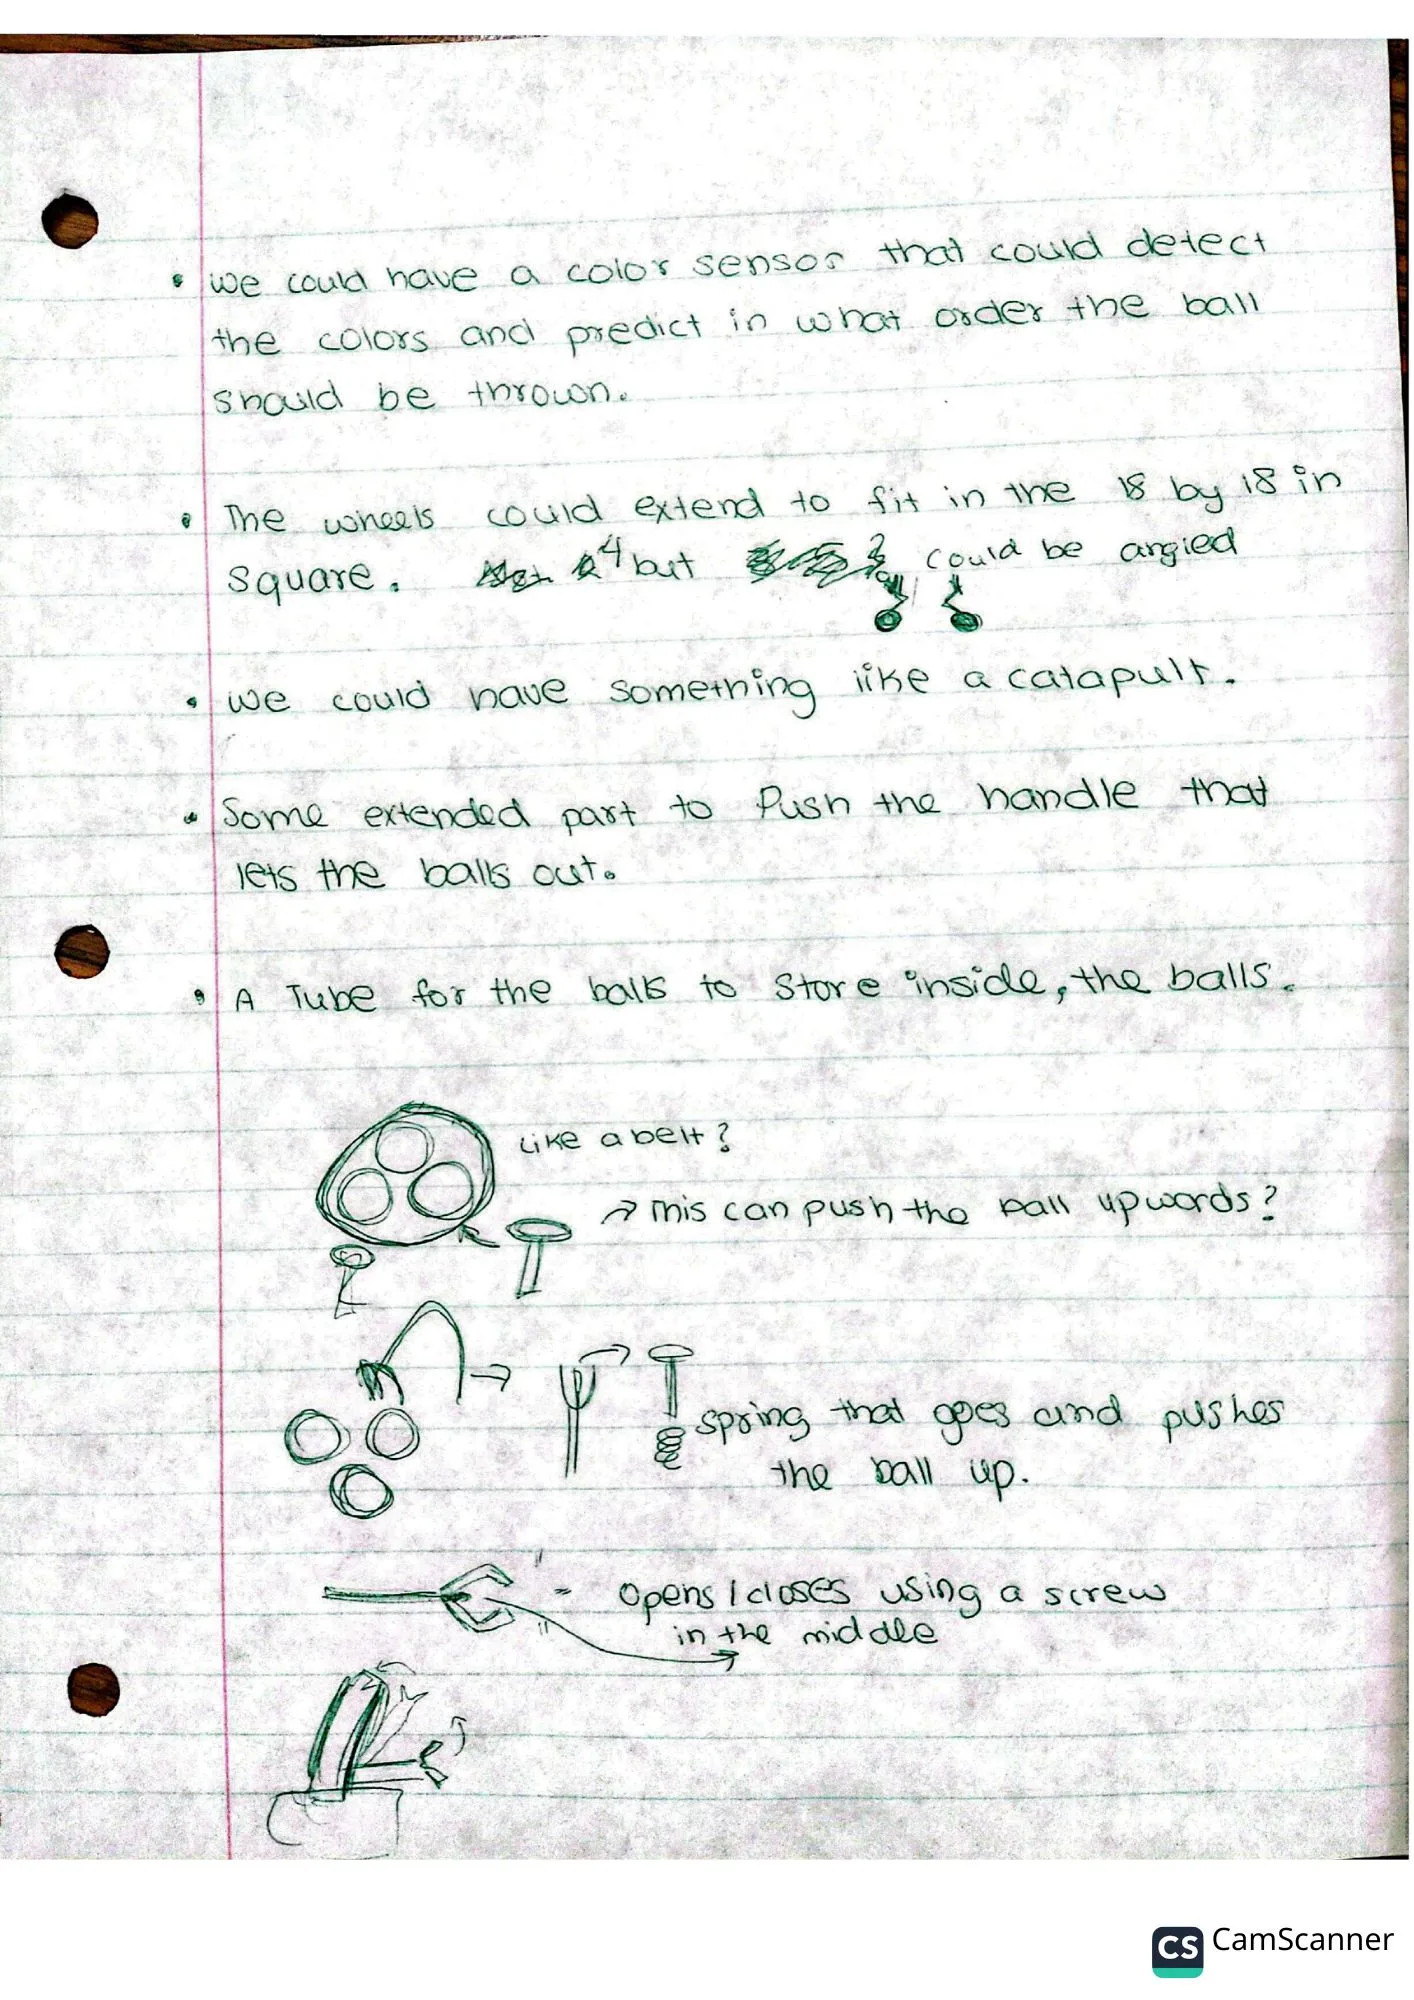 • We could have a color sensor that could detect
the colors and predict in what order the ball
should be thrown.
• The wheels could extend to fit in the 18 by 18 in
square. 4 but 2 could be angled
• We could have something like a catapult.
• Some extended part to Push the handle that
lets the balls out.
• A Tube for the balls to store inside, the balls.
Like a belt?
→ This can push the ball upwords?
spring that goes and pushes
the ball up.
= Opens/closes using a screw
in the middle
CS CamScanner